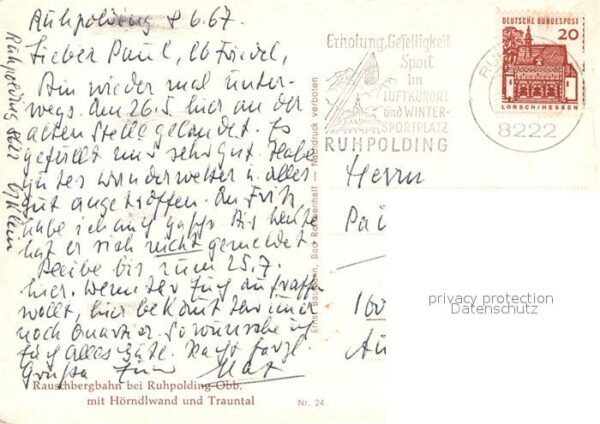 Ruhpolding 8 6.67.
Lieber Paul, lb Friedel,
Bin wieder mal unter-
wegs. Am 26.5 hier an der
alten Stelle gelandet. Es
gefällt mir sehr gut. Habe
gutes Wanderwetter u. alles
gut angetroffen. An Fritz
habe ich auch Bis heute
hat er sich nicht gemeldet
Bleibe bis zum 25.7.
hier. Wenn ihr Euch aufraffen
wollt, hier bekämt ihr immer
noch Quartier. So wünsche ich
Euch alles Gute. Recht herzl.
Grüße Euer Max
Ruhpolding 8222
Erholung, Geselligkeit
Sport
im
LUFTKURORT
und WINTER-
SPORTPLATZ
RUHPOLDING
8222
DEUTSCHE BUNDESPOST
20
LORSCH/HESSEN
Herrn
privacy protection
Datenschutz
Ernst Baumann, Bad Reichenhall — Nachdruck verboten
Rauschbergbahn bei Ruhpolding Obb.
mit Hörndlwand und Trauntal
Nr. 24